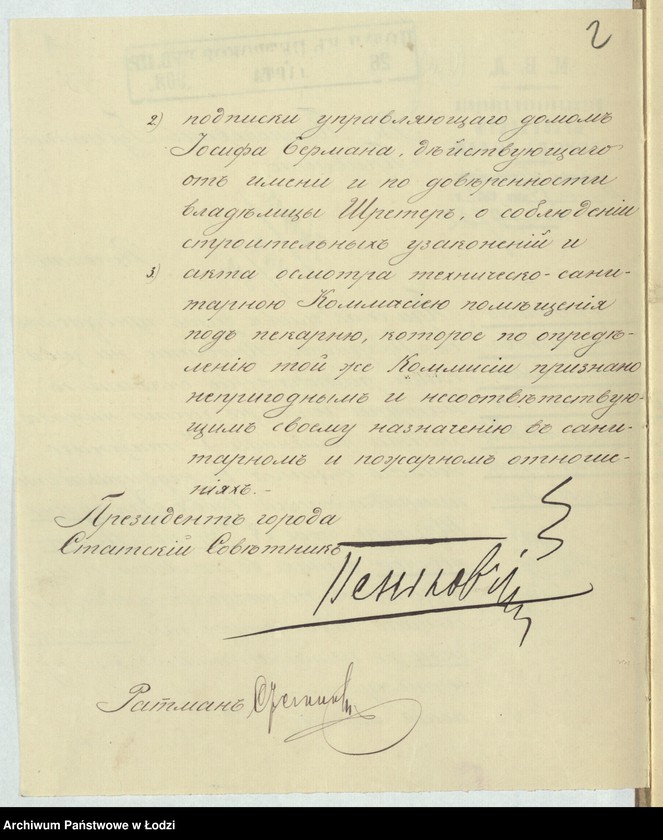 2
2) подписки управляющаго домомъ
Іосифа Бермана, дѣйствующаго
отъ имени и по довѣренности
владѣлицы Шретеръ, о соблюденіи
строительныхъ узаконеній и
3) акта осмотра техническо-сани-
тарною Коммасіею помѣщенія
подъ пекарню, которое по опредѣ-
ленію той же Коммисіи признано
непригоднымъ и несоотвѣтствую-
щимъ своему назначенію въ сани-
тарномъ и пожарномъ отноше-
ніяхъ.-
Президентъ города
Статскій Совѣтникъ
Ратманъ
Archiwum Państwowe w Łodzi